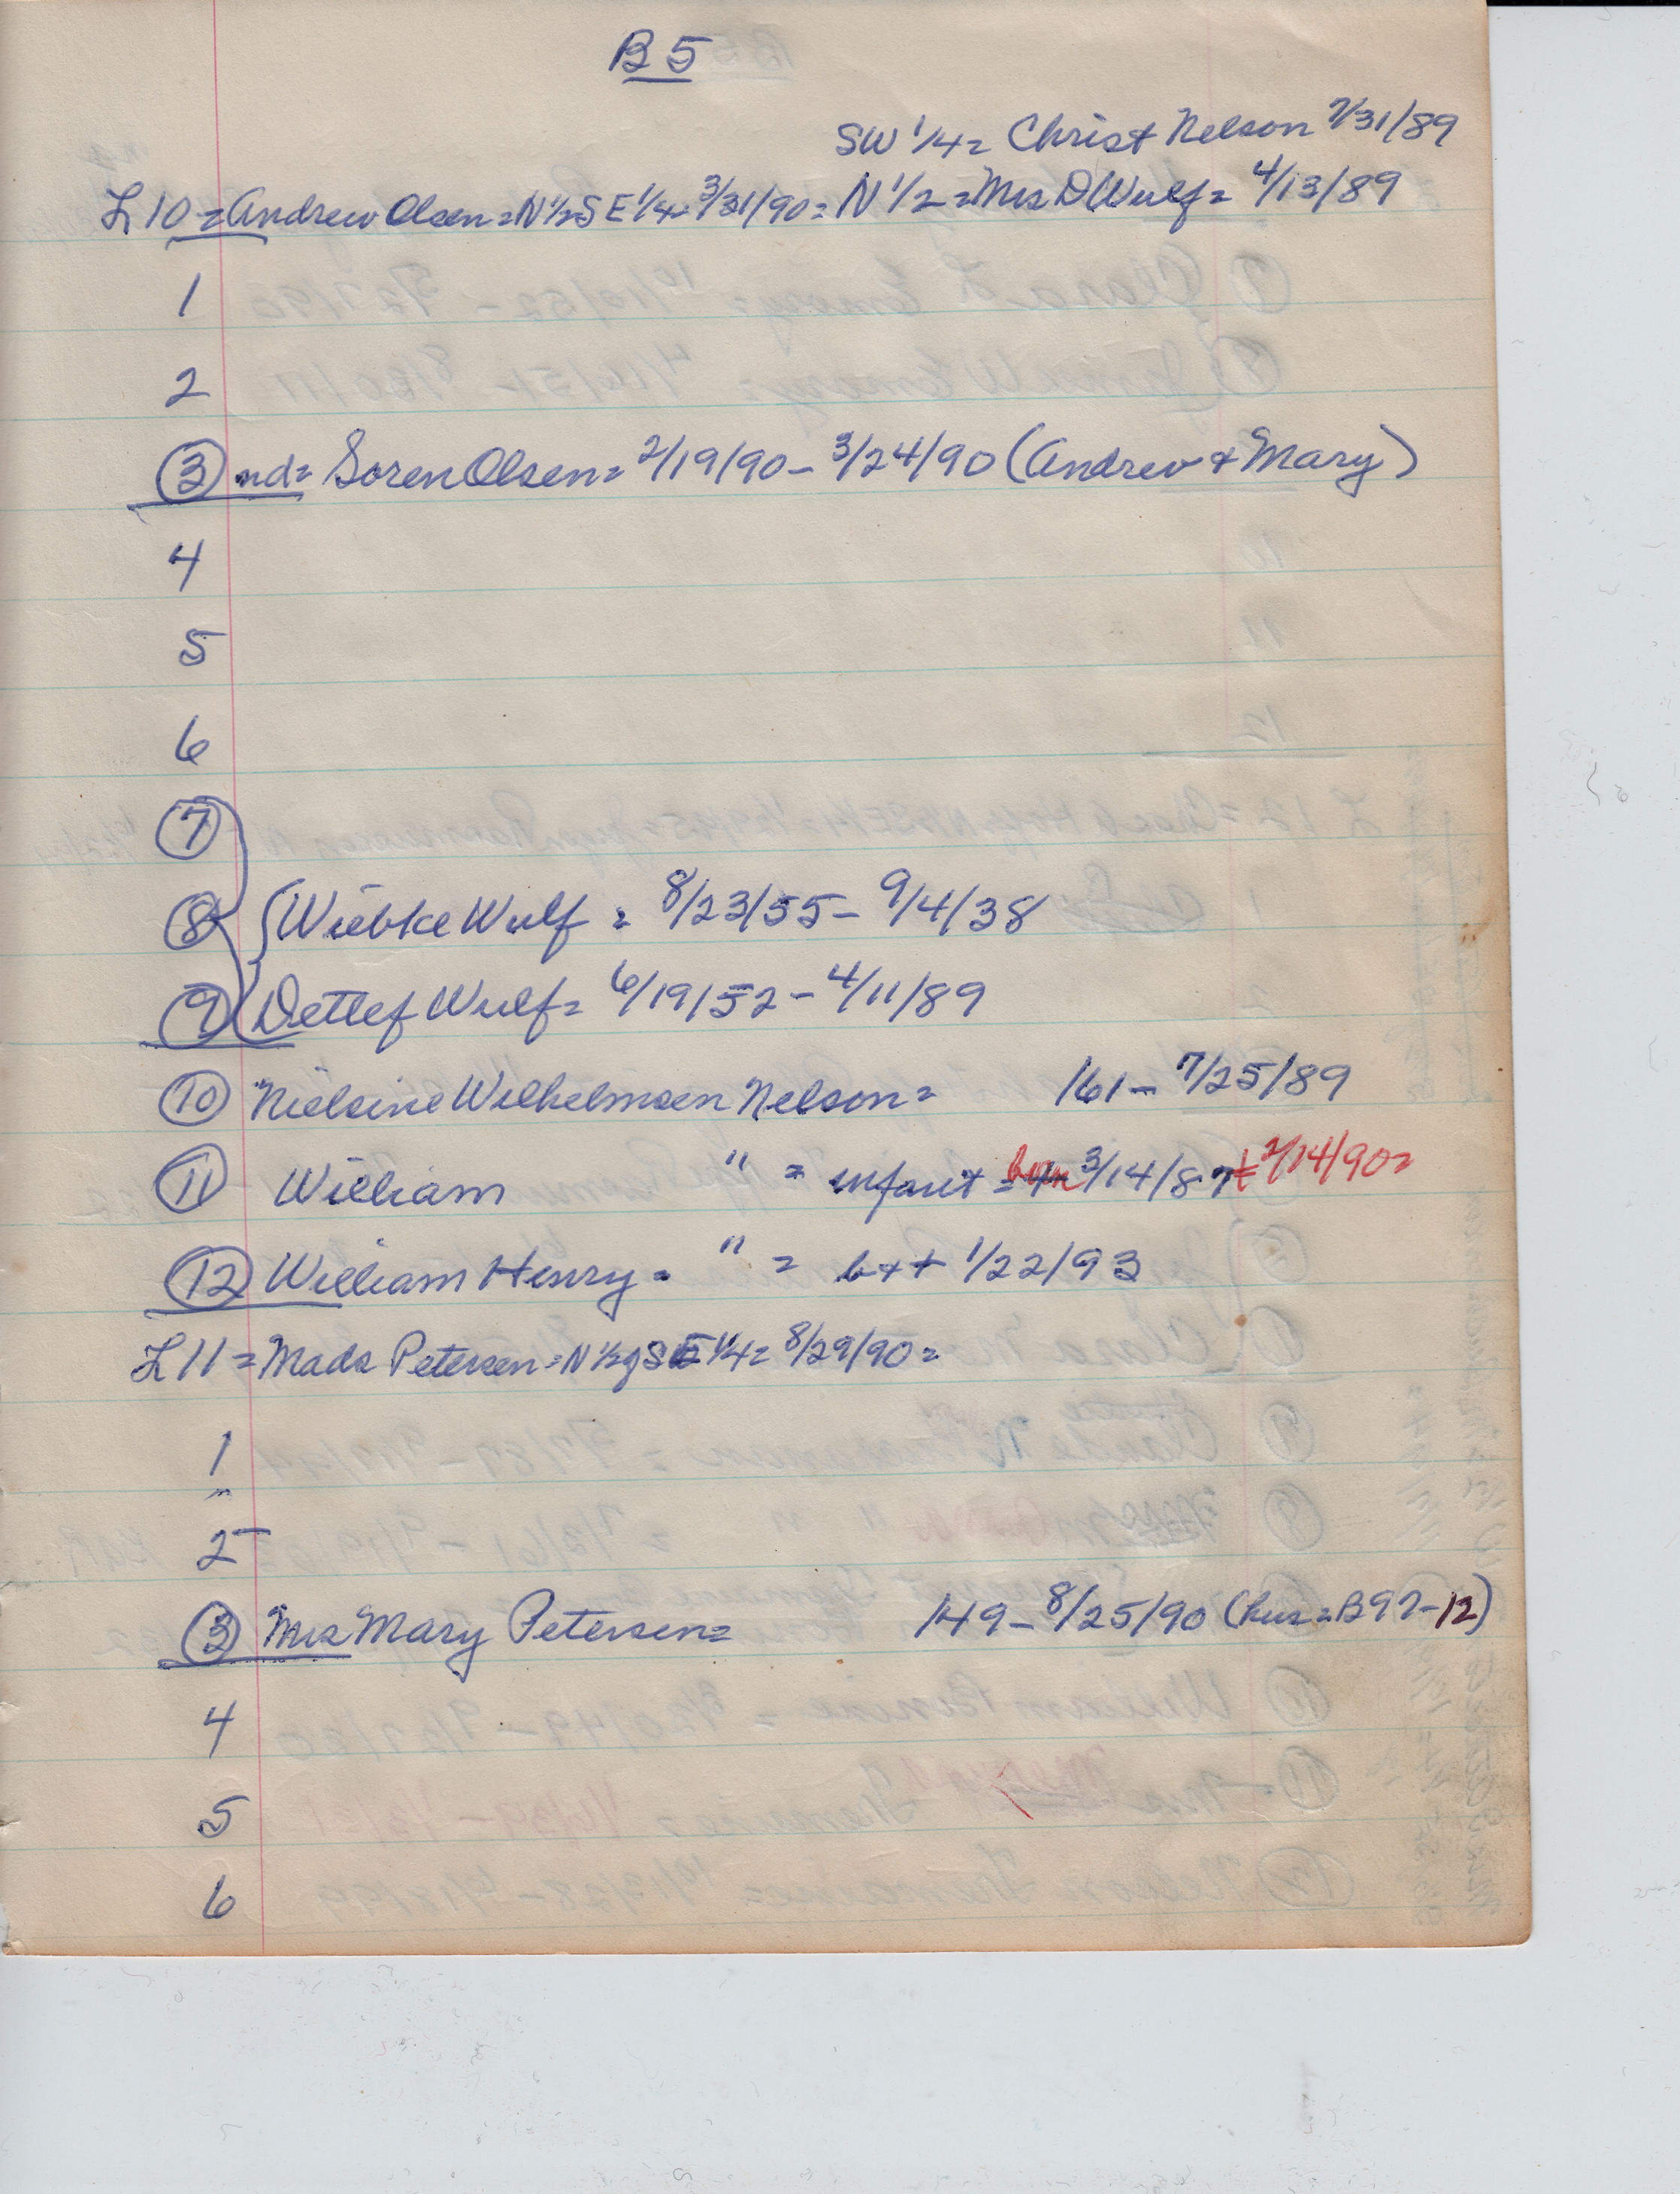 B 5
SW 1/4 = Christ Nelson 7/31/89
L 10 = Andrew Olsen = N 1/2 S E 1/4 = 3/31/90 = N 1/2 = Mrs D Wulf = 4/13/89
1
2
3 nd = Soren Olsen = 2/19/90 - 3/24/90 (Andrew + Mary)
4
5
6
7
8 Wiebke Wulf = 8/23/55 - 9/4/38
9 Detlef Wulf = 6/19/52 - 4/11/89
10 Nielsine Wilhelmsen Nelson = 161 - 7/25/89
11 William " = infant = born 3/14/87 t 2/14/90 =
12 William Henry = " = b + t 1/22/93
L 11 = Mads Petersen = N 1/2 of S E 1/4 = 8/29/90 =
1
"
2
3 Mrs Mary Petersen = 149 - 8/25/90 (hus = B97-12)
4
5
6